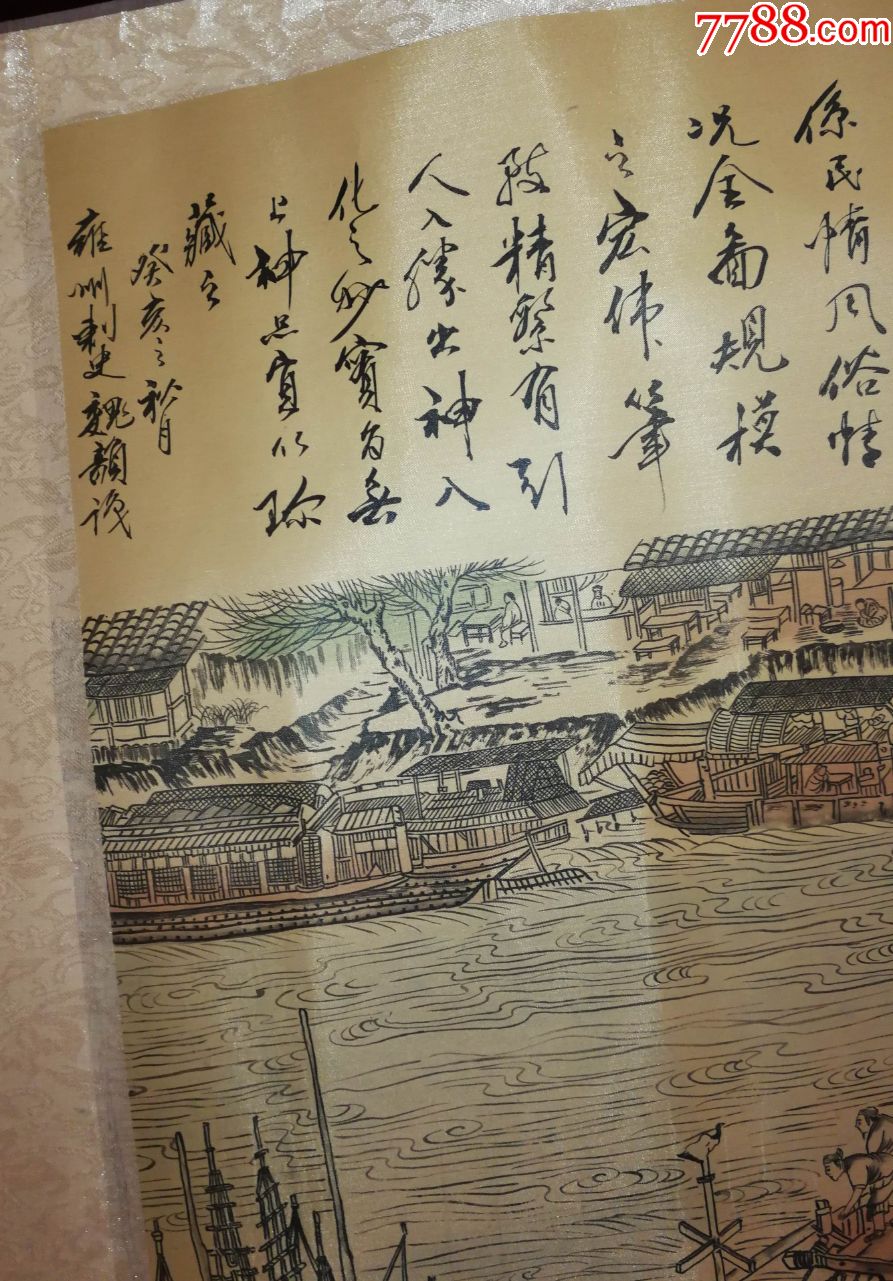 7788.com
係民情风俗情
况全面規模
之宏伟筆
致精繁有引
人入勝出神入
化之妙寳為無
上神品宜以珍
藏之
癸亥之秋月
雍州刺史魏顥識